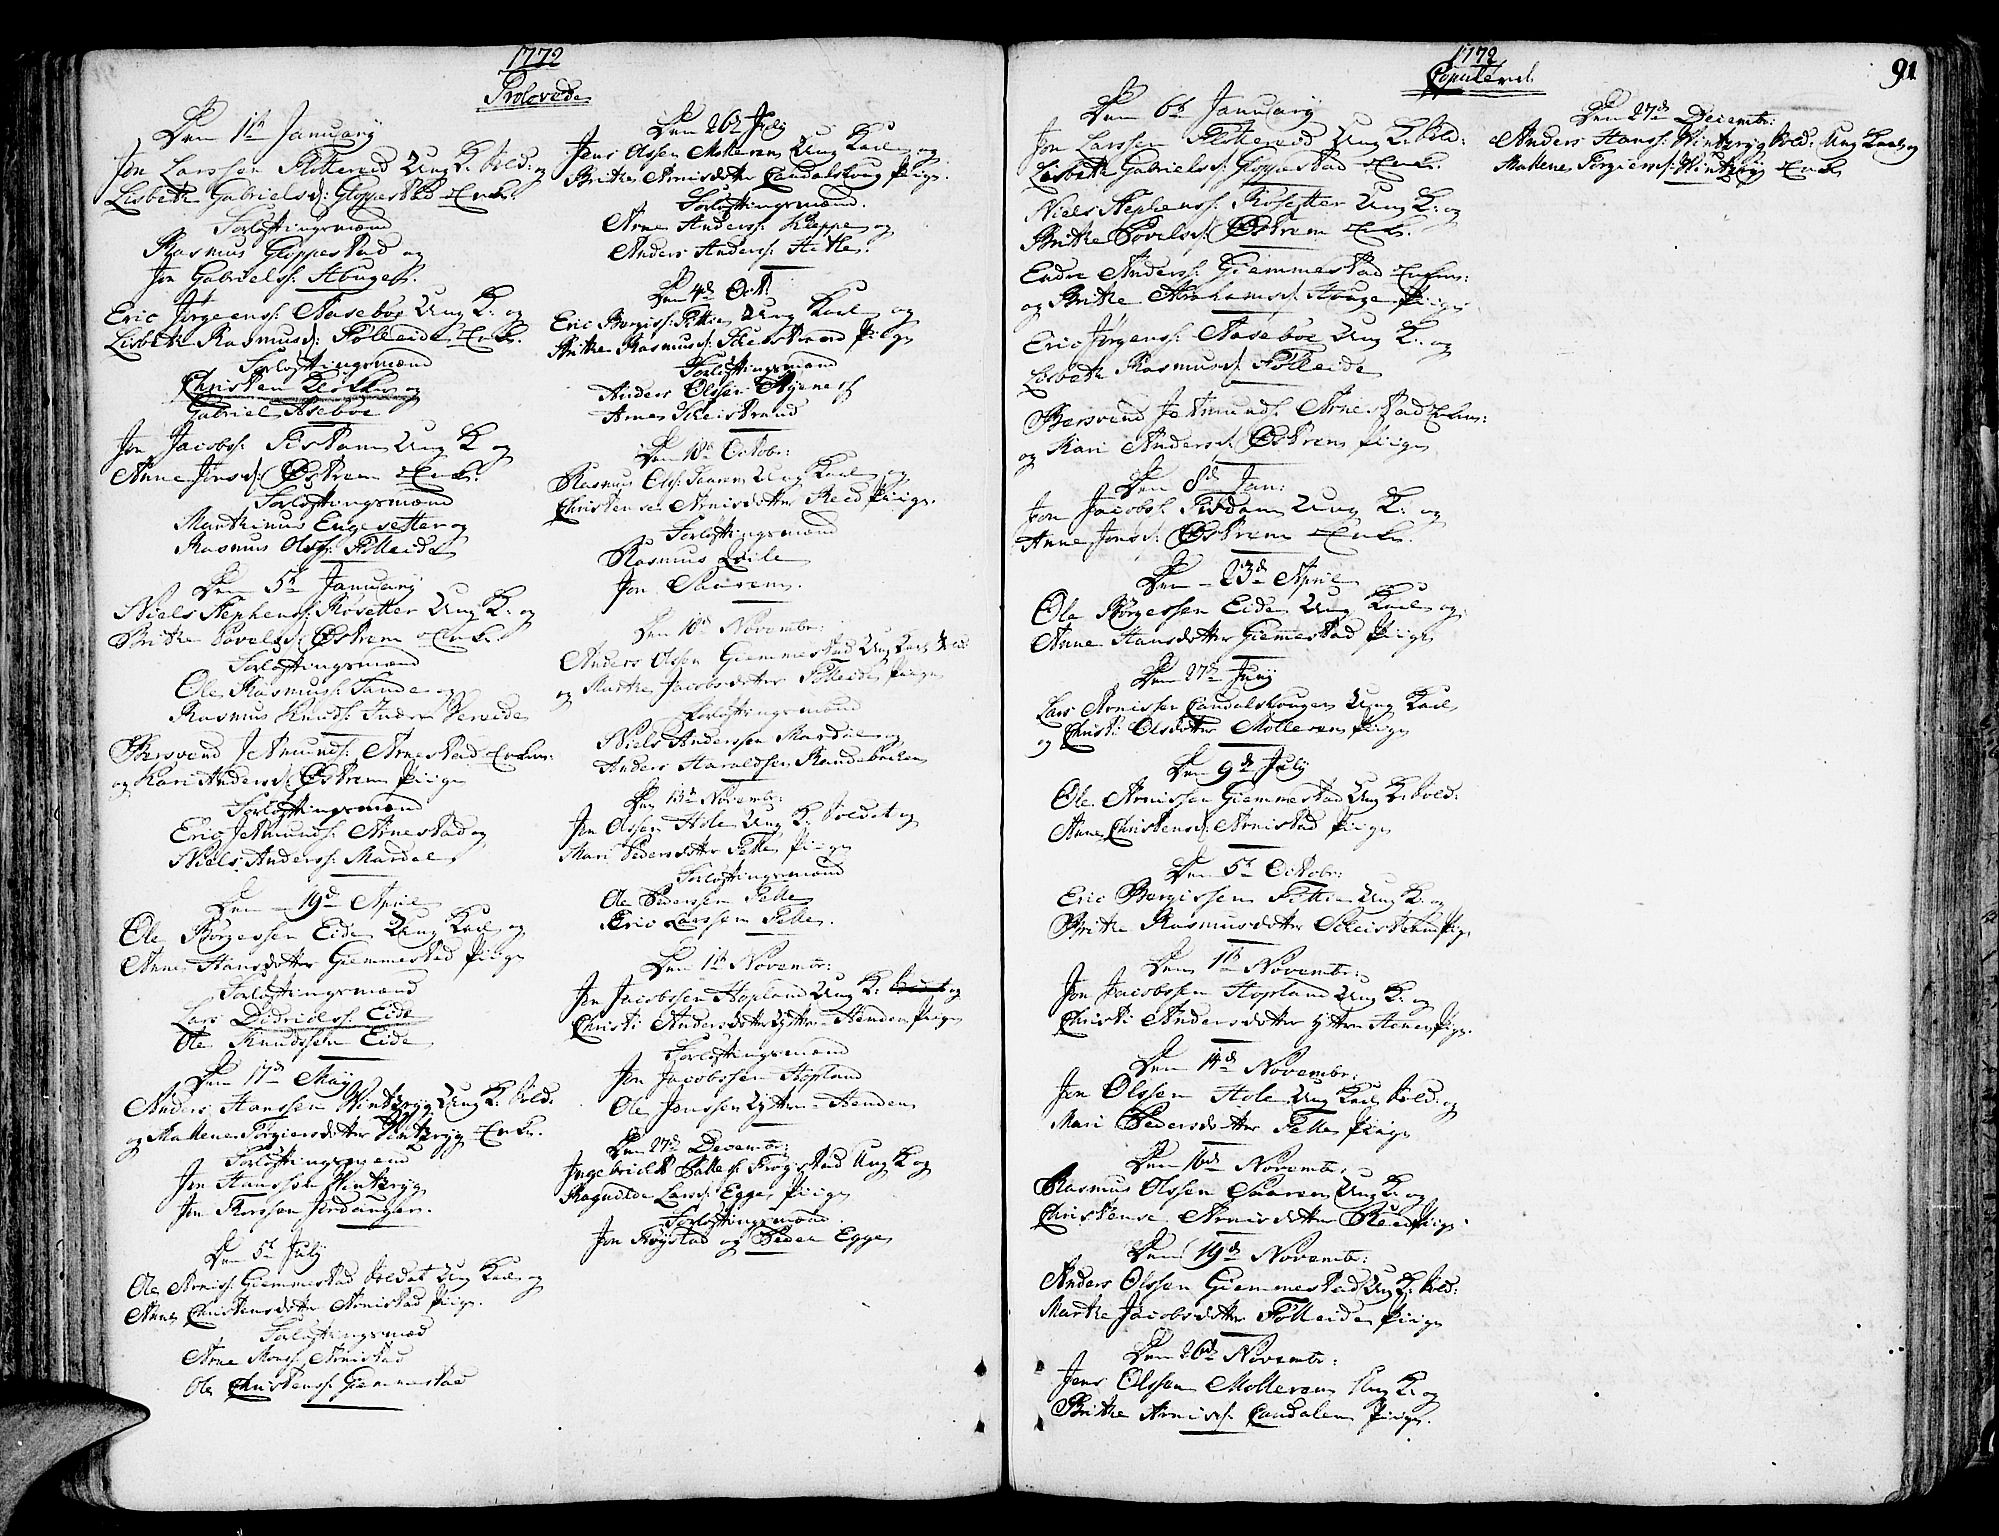 1772
Trolovede
Den 1te January
Jon Larssen Flotterød Ung K. Sold: og
Lisbeth Gabrielsd: Gloppestad Enke.
Forlovtingsmænd
Rasmus Gloppestad og
Jon Gabrielss: Houge
Eric Jørgenss: Aaseboe Ung K. og
Lisbeth Rasmusd: Følleide Enke.
Forlovtingsmænd
Christen Klokker og
Gabriel Aseboe
Jon Jacobss: Fisdam Ung K og
Anne Jonsd: Østrem Enke.
Forlovtingsmænd
Marthinus Engesetter og
Rasmus Olss: Følleide
Den 5te January
Niels Stephenss: Røsetter Ung K. og
Brithe Povelsd: Østrem Enke
Forlovtingsmænd
Ole Rasmuss: Sande og
Rasmus Knuds: Inder Vereide
Bersvend Jetmunds: Arnestad Enkem:
og Kari Andersd: Østrem Piige
Forlovtingsmænd
Eric Jetmunds: Arnestad og
Niels Anderss: Mardal
Den 19de April
Ole Børgessen Eide Ung Karl og
Anne Hansdotter Giemmestad Piige
Forlovtingsmænd
Lars Didricss: Eide
Ole Knudssen Eide
Den 17de May
Anders Hanssen Vintereig Ung K. Sold:
og Malene Torgiersdotter Vintereig Enke.
Forlovtingsmænd
Jon Hanssen Vintereig
Jon Thorssen Jordanger.
Den 5te July
Ole Arniss: Giemmestad Soldat Ung Karl og
Anne Christensdotter Arnistad Piige.
Forlovtingsmæd
Arne Mons: Arnistad
Ole Christenss: Giemmestad
Den 26de July
Jens Olssen Molleren Ung Karl og
Brithe Arnisdotter Eandalshoug Piige.
Forlovtingsmænd.
Arne Anderss: Kleppe og
Anders Anderss: Hetle.
Den 4de Oct:
Eric Børgiss: Fittie Ung Karl og
Brithe Rasmusd: Scheistrand Piige
Forlovtingsmænd
Anders Olssen Ryenes
Arne Scheistrand
Den 18de Octobr:
Rasmus Olss: Saarem Ung Karl og
Christense Arnisdotter Reed Piige.
Forlovtingsmænd
Rasmus Qvile
Jon Saurem.
Den 10de Novembr:
Anders Olssen Giemmestad Ung Karl Sold
og Marthe Jacobsdotter Følleide Piige
Forlovtingsmænd
Niels Anderssen Mardal og
Anders Haraldsen Randebacken
Den 13de Novembr:
Jon Olssen Hole Ung K. Soldat og
Mari Pedersdotter Felle Piige
Forlovtingsmænd
Ole Pederssen Felle
Eric Larssen Felle.
Den 1te Novembr:
Jon Jacobssen Hopland Ung K. og
Christi Andersdotter Ytter-Henden Piige
Forlovtingsmænd
Jon Jacobssen Hopland
Ole Jonssen Ytter-Henden
Den 27de Decembr:
Ingebricht Frøystad Ung K og
Ragnilde Larsd: Egge, Piige
Forlovtingsmænd.
Jon Frøystad og Peder Egge
1772
Copulered.
91
Den 6te January
Jon Larssen Flotterød Ung K. Sold:
Lisbeth Gabrielsd: Gloppestad Enke.
Niels Stephenss: Røsetter Ung K. og
Brithe Povelsd: Østrem Enke.
Endre Anderss: Giemmestad Enkem:
og Brithe Abrahamsd: Houge Piige
Eric Jørgenss: Aaseboe Ung K. og
Lisbeth Rasmusd: Følleide
Bersvend Jetmunds: Arnestad Enkem:
og Kari Andersd: Østrem Piige
Den 8de Jan:
Jon Jacobss: Fisdam Ung K. og
Anne Jonsd: Østrem Enke.
Den 23de April
Ole Børgessen Eide Ung Karl og
Anne Hansdotter Giemestad Piige
Den 27de Juny
Lars Arnissen Eandalshougen Ung Karl
og Christi Olsdotter Molleren Piige
Den 9de July
Ole Arnissen Giemmestad Ung K. Sold:
Anne Christensd: Arnistad Piige
Den 5te Octobr:
Eric Børgissen Fittie Ung K. og
Brithe Rasmusdotter Scheistrand Piige
Den 1te Novembr:
Jon Jacobssen Hopland Ung K. og
Christi Andersdotter Ytter-Henen Piige.
Den 14de Novembr:
Jon Olssen Hole Ung Karl Sold: og
Mari Pedersdotter Felle Piige
Den 16de Novembr:
Rasmus Olssen Saarem Ung K. og
Christense Arnisdotter Reed Piige.
Den 19de Novembr:
Anders Olssen Giemmestad Ung K. Sold:
Marthe Jacobsdotter Følleide Piige
Den 26de Novembr:
Jens Olssen Molleren Ung K. og
Brithe Arnisd: Eandalen Piige.
Den 27de Decembr:
Anders Hanss: Vintereig Sold: Ung Karl og
Mallene Torgiersd: Vintereig Enke